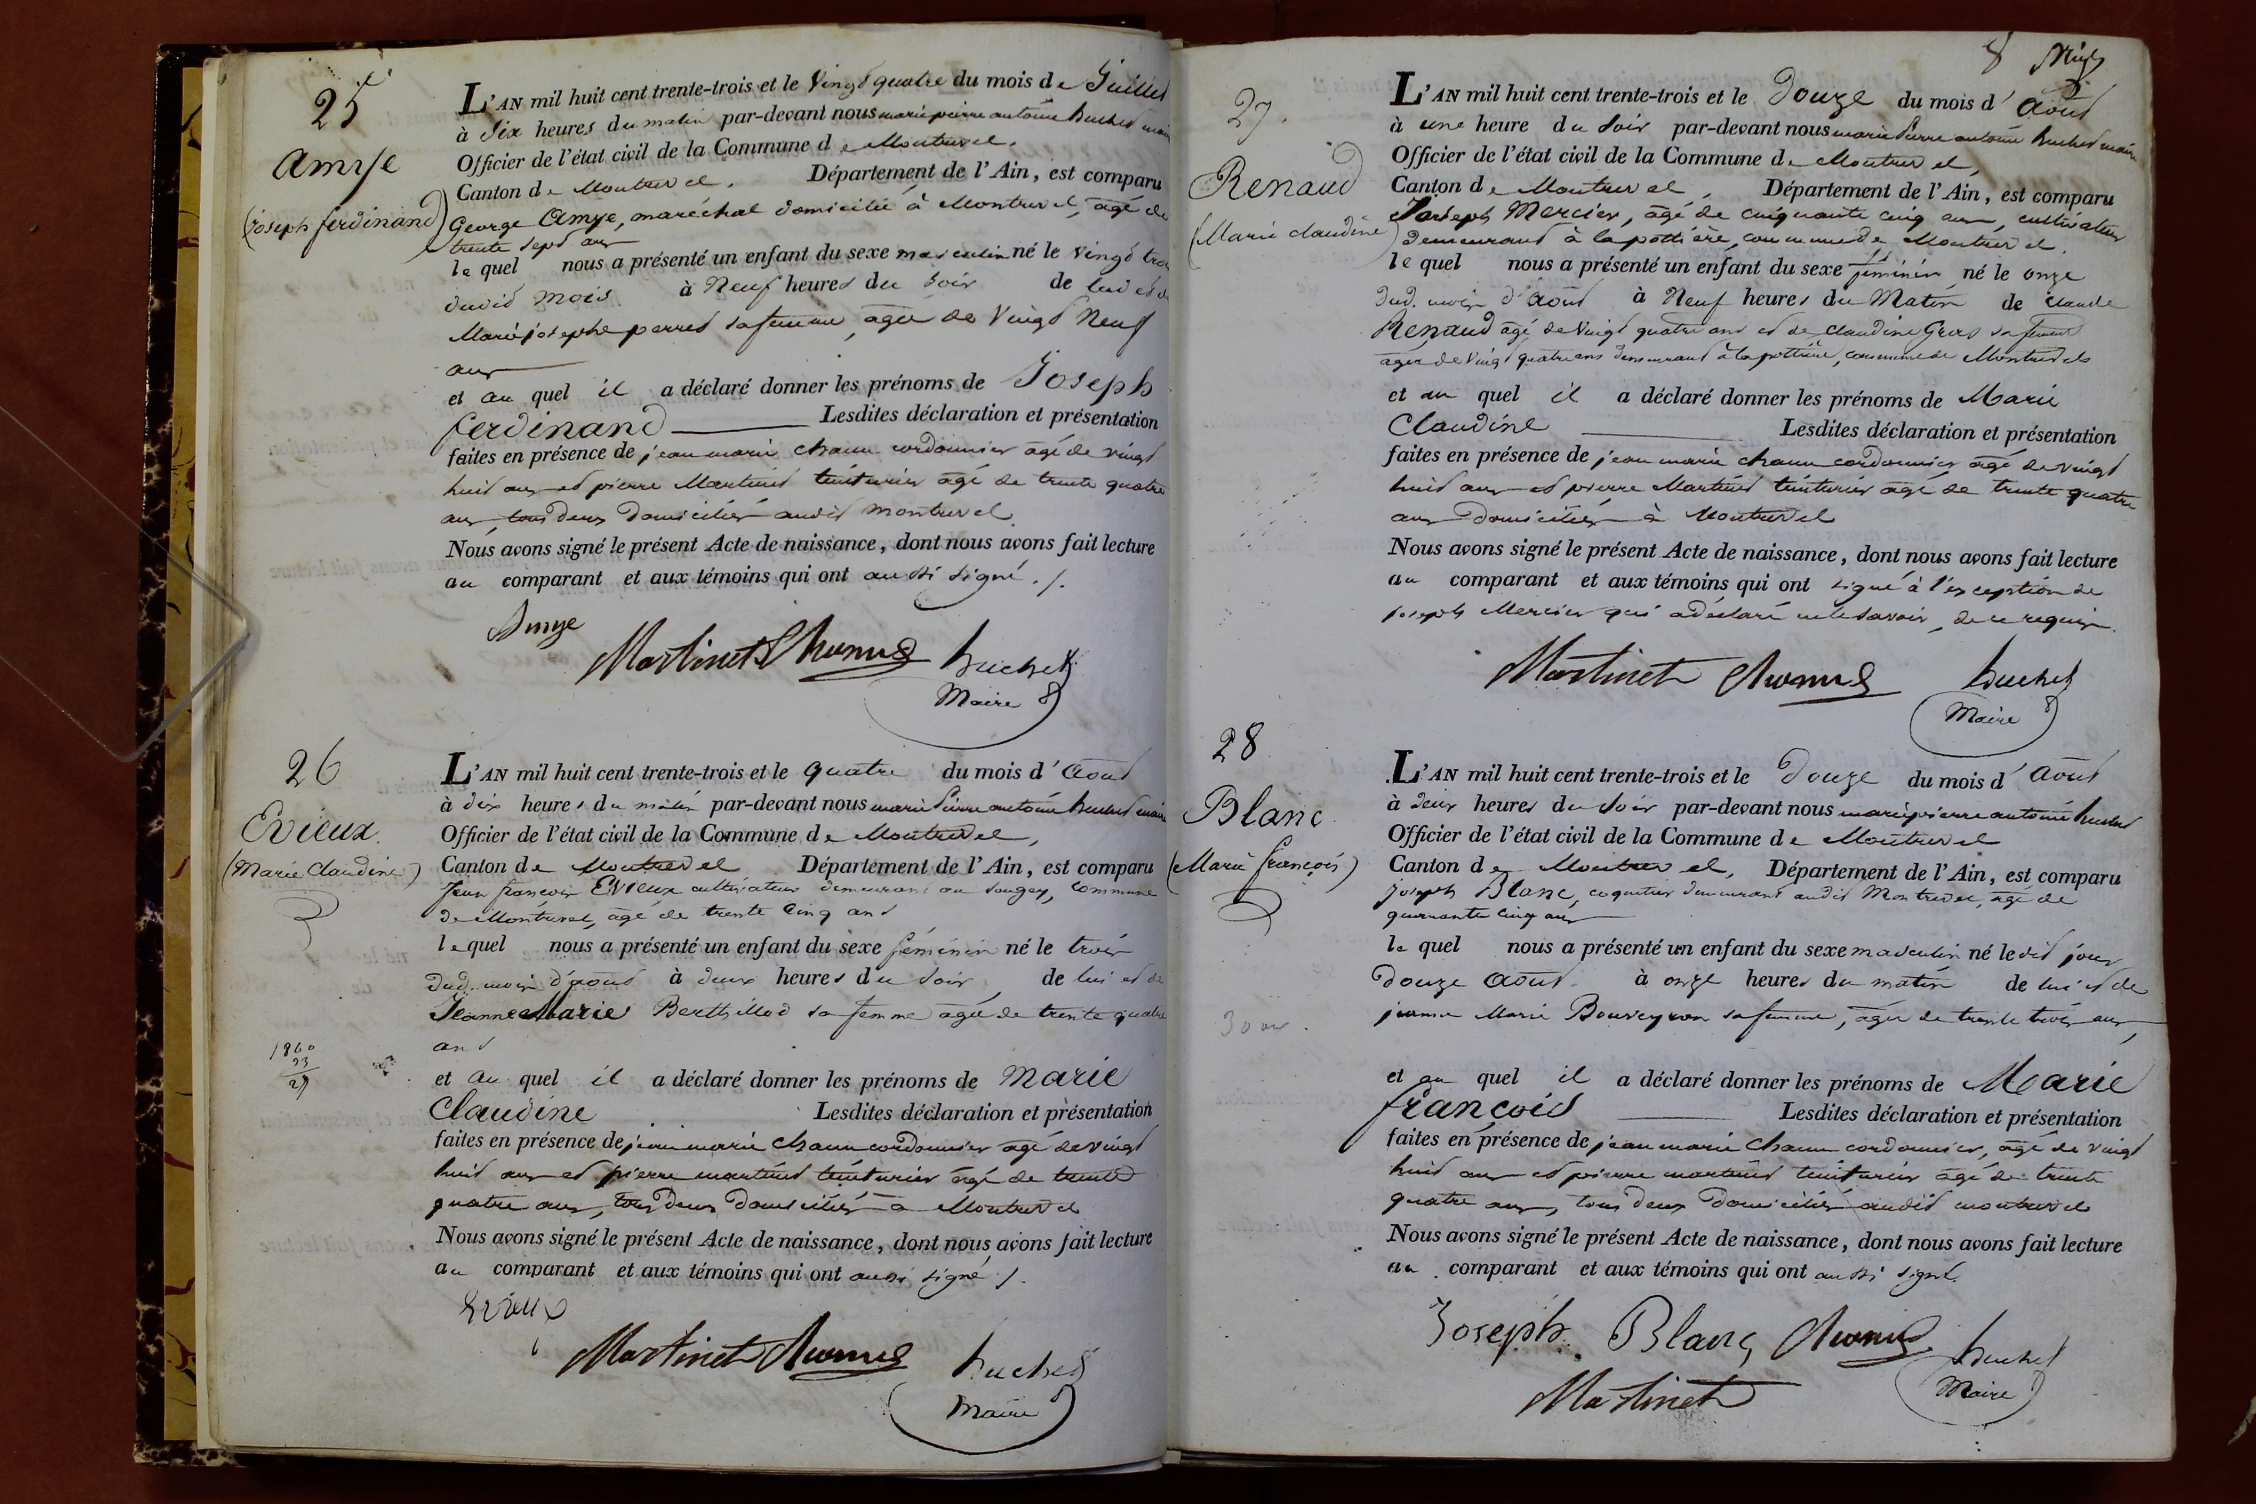 25
amye
(joseph ferdinand)
L'AN mil huit cent trente-trois et le Vingt quatre du mois de Juillet
à Six heures du matin par-devant nous marie pierre antoine huchet maire
Officier de l'état civil de la Commune de Montrevel.
Canton de Montrevel. Département de l'Ain, est comparu
George Amye, maréchal domicilié à Montrevel, agé de
trente sept ans
lequel nous a présenté un enfant du sexe masculin né le vingt trois
dudit mois à Neuf heures du soir de lui et de
Marie josephe perret sa femme, agée de Vingt Neuf
ans
et au quel il a déclaré donner les prénoms de Joseph
ferdinand Lesdites déclaration et présentation
faites en présence de jean marie cordonnier agé de vingt
huit ans et pierre Martinet teinturier agé de trente quatre
ans, tous deux domiciliés audit montrevel
Nous avons signé le présent Acte de naissance, dont nous avons fait lecture
au comparant et aux témoins qui ont aussi signé ./.
Amye
Martinet huchet
Maire
26
Evieux
(Marie Claudine)
1860
33
27
L'AN mil huit cent trente-trois et le quatre du mois d'août
à dix heures du matin par-devant nous marie Pierre antoine huchet maire
Officier de l'état civil de la Commune de Montrevel,
Canton de Montrevel Département de l'Ain, est comparu
Jean françois Evieux cultivateur demeurant au Sougey, Commune
de Montrevel, agé de trente cinq ans
lequel nous a présenté un enfant du sexe féminin né le trois
dud. mois d'aout à deux heures du soir, de lui et de
Jeanne Marie Berthillod sa femme agée de trente quatre
ans
et au quel il a déclaré donner les prénoms de Marie
Claudine Lesdites déclaration et présentation
faites en présence de jean marie cordonnier agé de vingt
huit ans et pierre martinet teinturier agé de trente
quatre ans, tous deux domiciliés à Montrevel
Nous avons signé le présent Acte de naissance, dont nous avons fait lecture
au comparant et aux témoins qui ont aussi signé ./.
Evieux
Martinet huchet
Maire
8
27.
Renaud
(Marie claudine)
L'AN mil huit cent trente-trois et le Douze du mois d'Août
à une heure du soir par-devant nous marie Pierre antoine huchet maire
Officier de l'état civil de la Commune de Montrevel,
Canton de Montrevel, Département de l'Ain, est comparu
Joseph Mercier, agé de cinquante cinq ans, cultivateur
demeurant à la pottière, commune de Montrevel.
lequel nous a présenté un enfant du sexe féminin né le onze
dud. mois d'août à Neuf heures du Matin de claude
Renaud agé de Vingt quatre ans et de claudine Gros sa femme
agée de Vingt quatre ans demeurant à la pottière, commune de Montrevel
et au quel il a déclaré donner les prénoms de Marie
Claudine Lesdites déclaration et présentation
faites en présence de jean marie cordonnier agé de vingt
huit ans et pierre Martinet teinturier agé de trente quatre
ans domiciliés à Montrevel
Nous avons signé le présent Acte de naissance, dont nous avons fait lecture
au comparant et aux témoins qui ont signé à l'exception de
joseph Mercier qui a déclaré ne le savoir, de ce requis.
Martinet huchet
Maire
28
Blanc
(Marie françois)
30
L'AN mil huit cent trente-trois et le Douze du mois d'août
à deux heures du soir par-devant nous marie pierre antoine huchet
Officier de l'état civil de la Commune de Montrevel
Canton de Montrevel, Département de l'Ain, est comparu
joseph Blanc, coquetier demeurant audit Montrevel, agé de
quarante cinq ans
lequel nous a présenté un enfant du sexe masculin né ledit jour
douze Août à onze heures du matin de lui et de
jeanne Marie Bouveyron sa femme, agée de trente trois ans,
et au quel il a déclaré donner les prénoms de Marie
françois Lesdites déclaration et présentation
faites en présence de jean marie cordonnier, agé de vingt
huit ans et pierre martinet teinturier agé de trente
quatre ans, tous deux domiciliés audit montrevel
Nous avons signé le présent Acte de naissance, dont nous avons fait lecture
au comparant et aux témoins qui ont aussi signé.
Joseph Blanc huchet
Martinet Maire